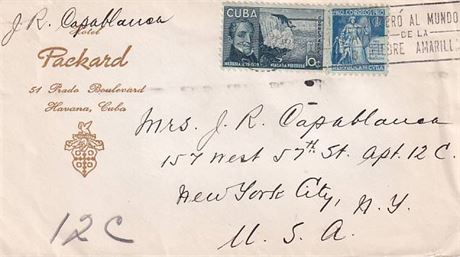 J. R. Capablanca
Hotel
Packard
51 Prado Boulevard
Havana, Cuba
CUBA
10c
ERÓ AL MUNDO
DE LA
EBRE AMARILL
Mrs. J. R. Capablanca
157 West 57th St. Apt. 12 C.
New York City, N.Y.
U. S. A.
12 C